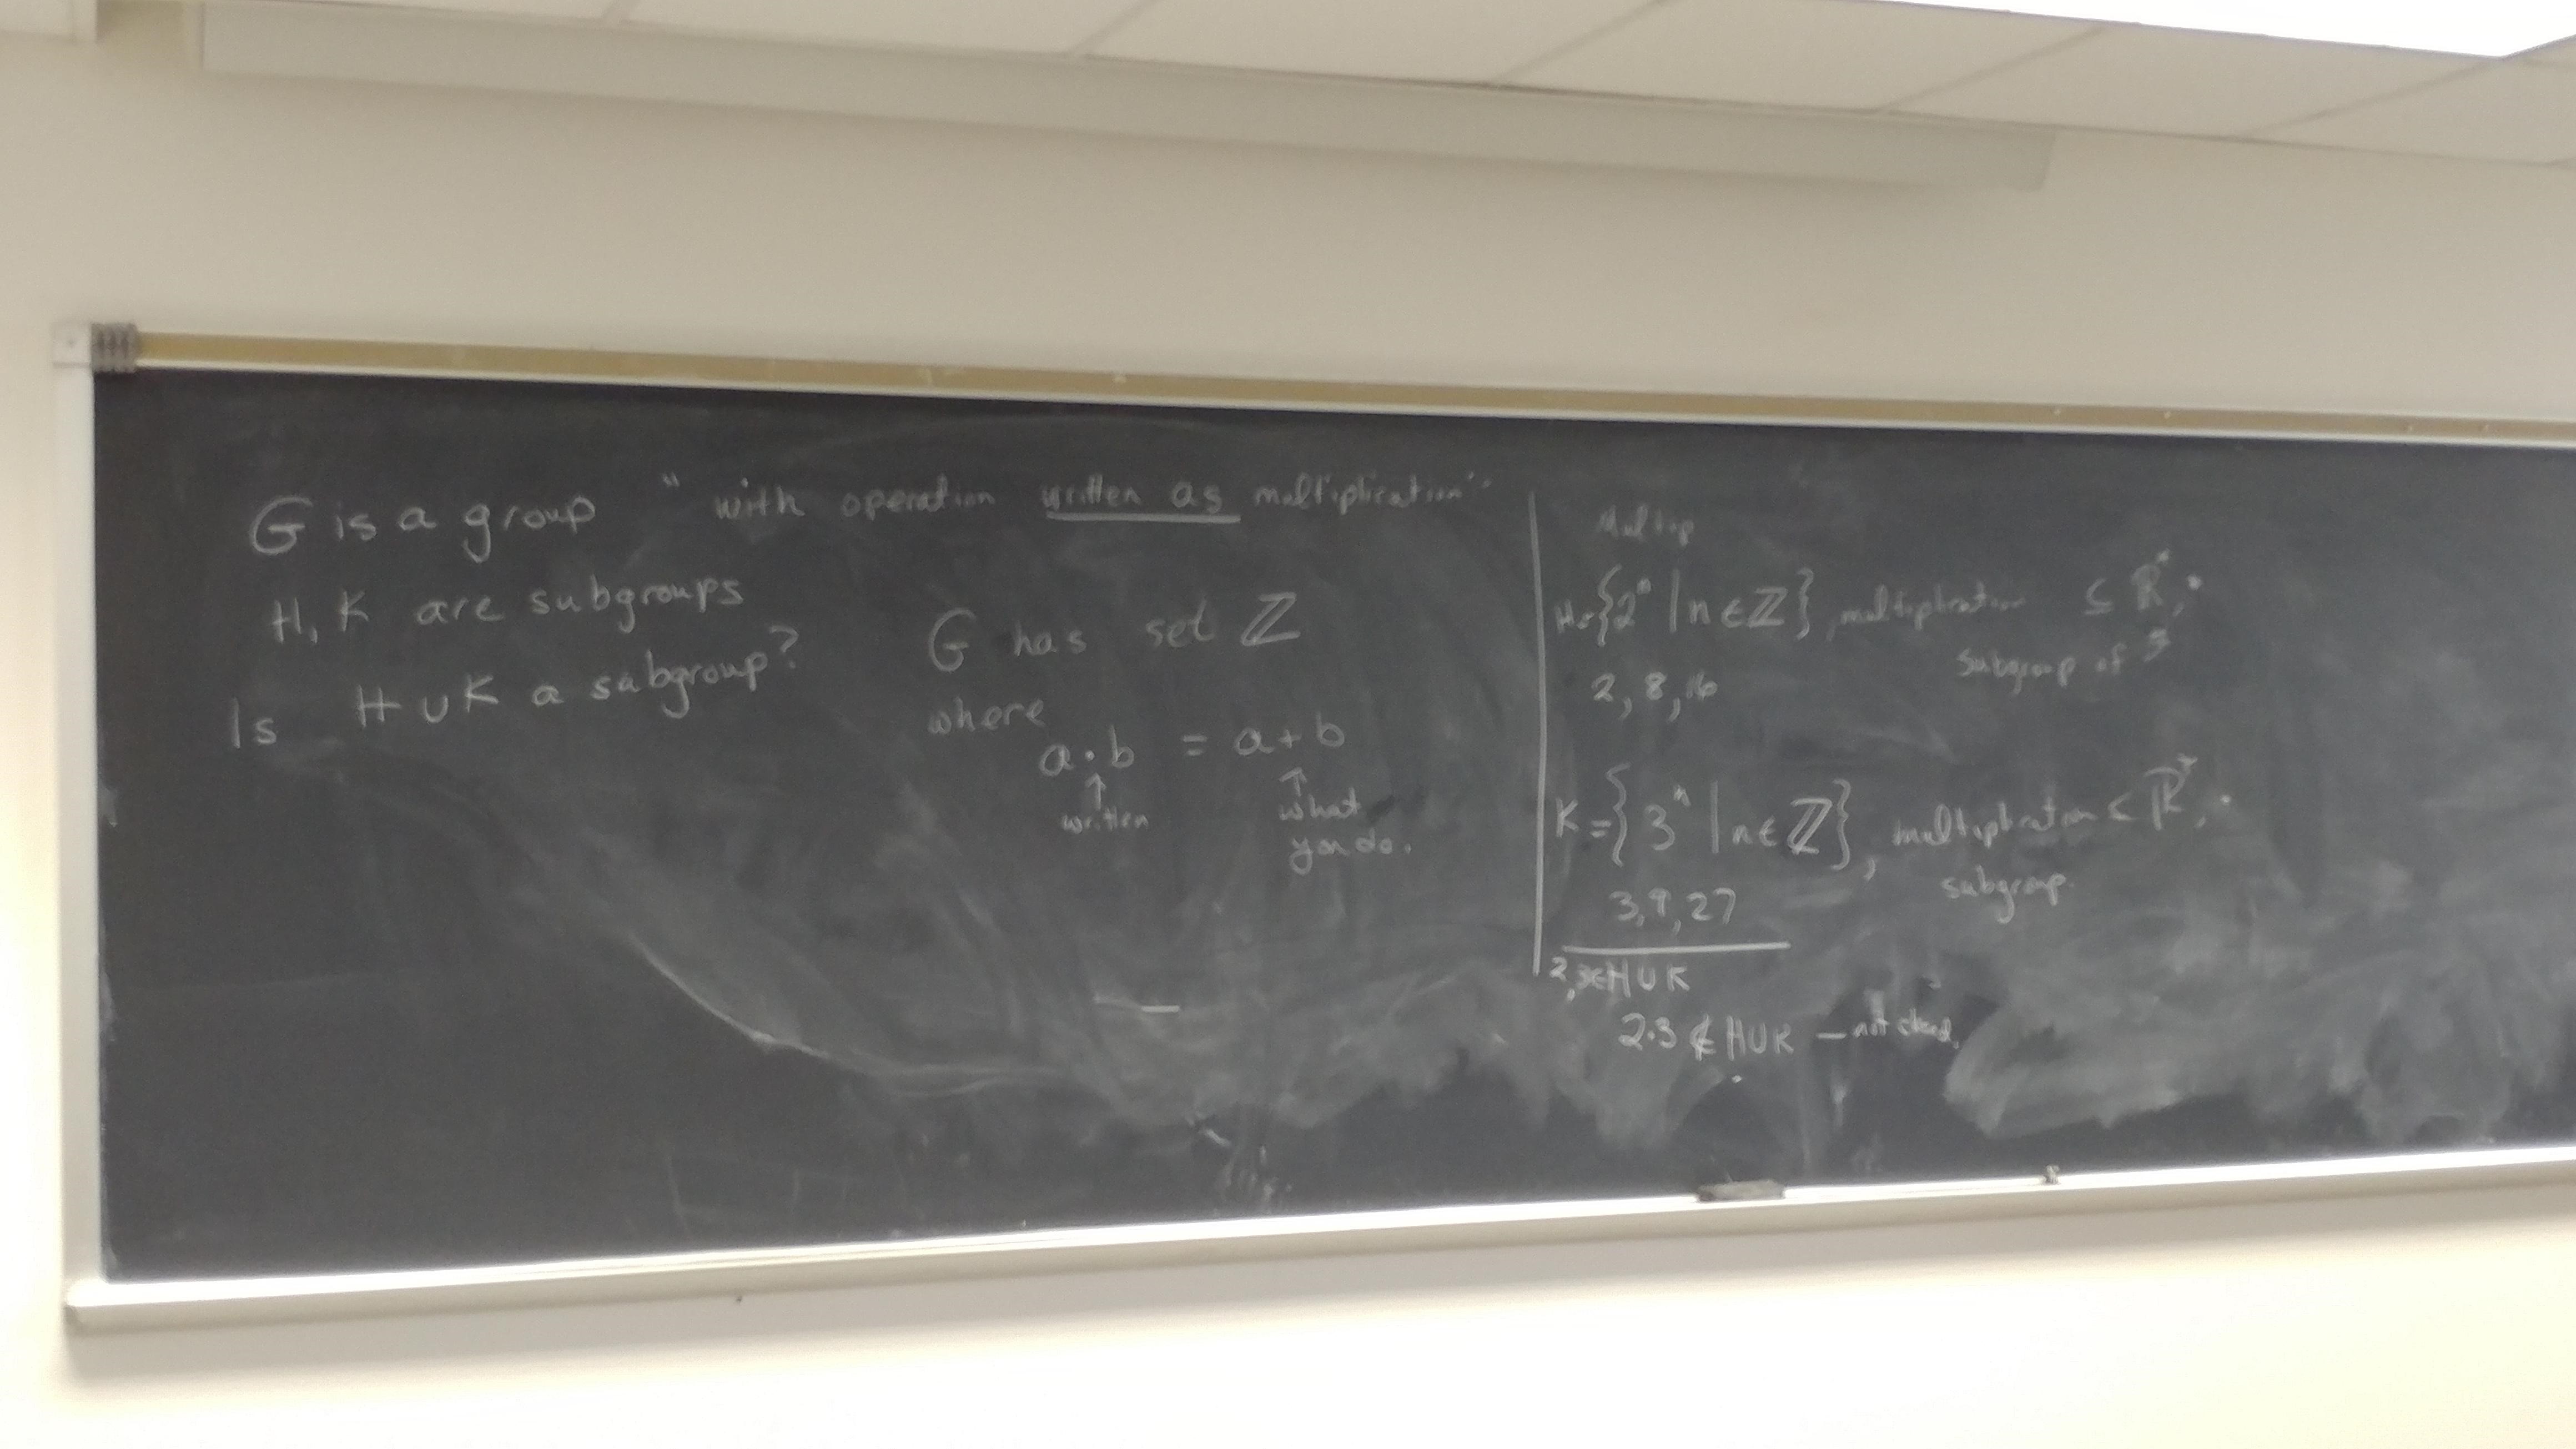 G is a group "with operation written as multiplication"
H, K are subgroups
Is H ∪ K a subgroup?
G has set ℤ
where
a · b = a + b
↑ ↑
written what
you do.
Multip
H = {2ⁿ | n ∈ ℤ}, multiplication ⊆ ℝ*, ·
2, 8, 16 subgroup of
K = {3ⁿ | n ∈ ℤ}, multiplication ≤ ℝ*, ·
3, 9, 27 subgroup.
2, 3 ∈ H ∪ K
2·3 ∉ H ∪ K — not closed.